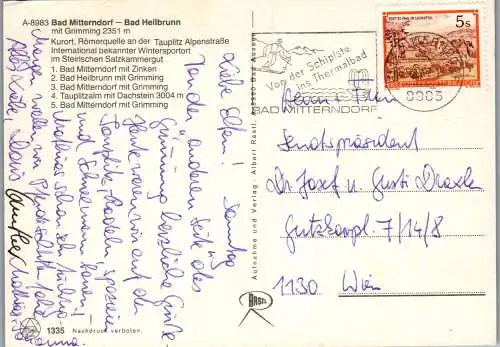 A-8983 Bad Mitterndorf – Bad Heilbrunn
mit Grimming 2351 m
Kurort, Römerquelle an der Tauplitz Alpenstraße
International bekannter Wintersportort
im Steirischen Salzkammergut
1. Bad Mitterndorf mit Zinken
2. Bad Heilbrunn mit Grimming
3. Bad Mitterndorf mit Grimming
4. Tauplitzalm mit Dachstein 3004 m
5. Bad Mitterndorf mit Grimming
Liebe Eltern! Samstag
Von der "anderen" Seite des
Grimming herzliche Grüße.
Heute waren wir auf der
Tauplitz, Rodeln, spazieren
und Schneemann bauen!
Mathias schon sehr
Morgen wollen wir Pferdeschlitten fahren
Alles Liebe,
1335 Nachdruck verboten.
Aufnahme und Verlag: Albert Rastl, A-8990 Bad Aussee
RASTL
Von der Schipiste
ins Thermalbad
BAD MITTERNDORF
5s
Herrn + Frau
Senatspräsident
Dr. Josef u. Gusti
7/14/8
1130 Wien